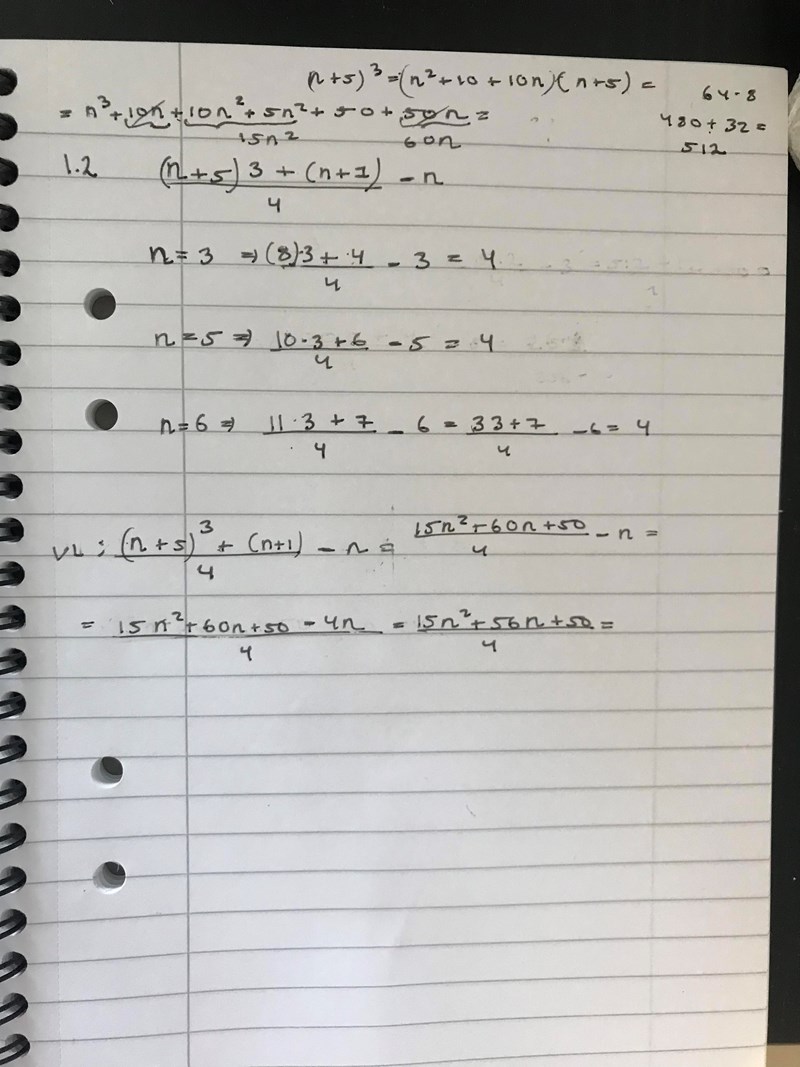 (n+5)³ = (n²+10+10n)(n+5) =
64·8
= n³+10n+10n²+5n²+50+50n =
480+32 =
15n² 60n
512
1.2 (n+5)3 + (n+1) / 4 - n
n=3 ⇒ (8)·3+·4 / 4 - 3 = 4
n=5 ⇒ 10·3+6 / 4 - 5 = 4
n=6 ⇒ 11·3+7 / 4 - 6 = 33+7 / 4 - 6 = 4
VL: (n+5)³ + (n+1) / 4 - n = 15n²+60n+50 / 4 - n =
= 15n²+60n+50-4n / 4 = 15n²+56n+50 / 4 =